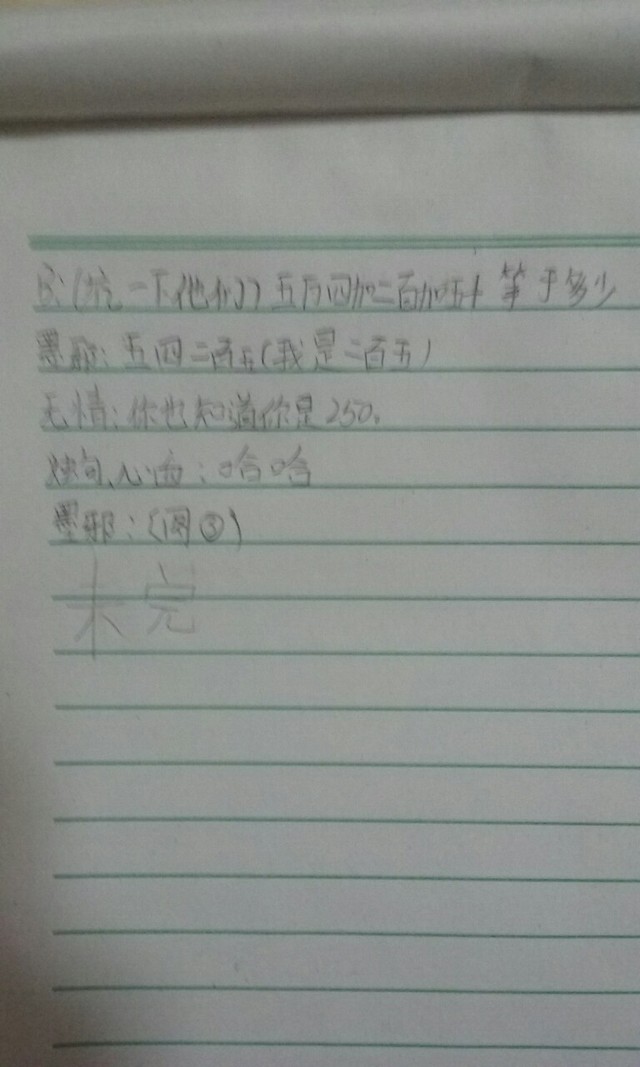 (坑一下他们)五万四加二百加五十等于多少
墨邪:五四二百五(我是二百五)
无情:你也知道你是250。
心:哈哈
墨邪:(同③)
未完